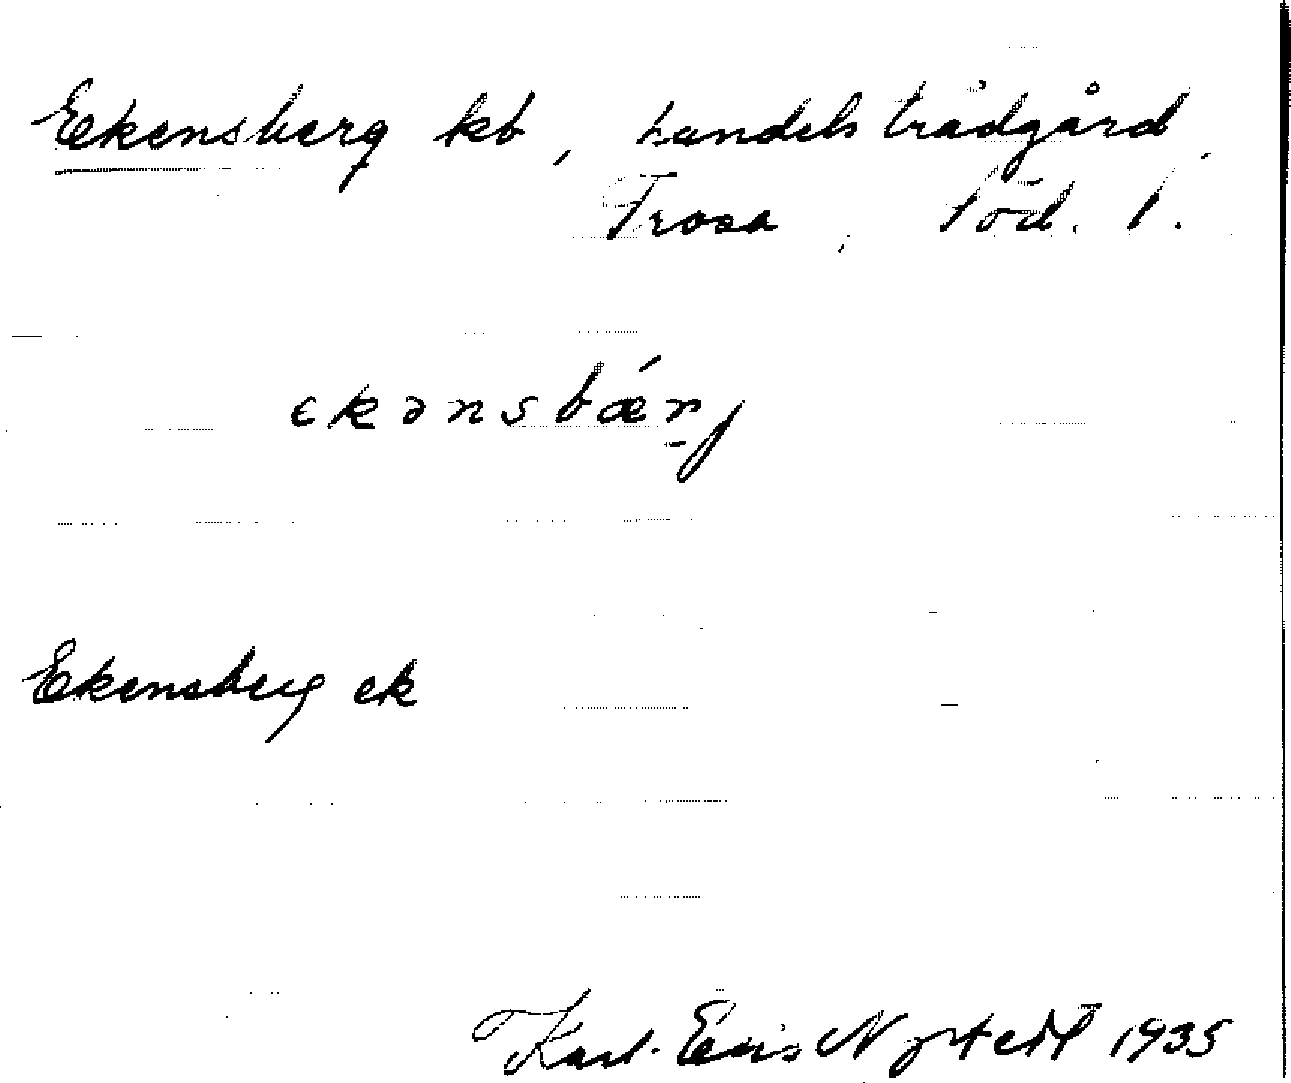 Ekensberg kb, handelsträdgård,
Trosa, Söd. l.
ekənsbǽrj
Ekensberg ek
Karl-Eric Nystedt 1935